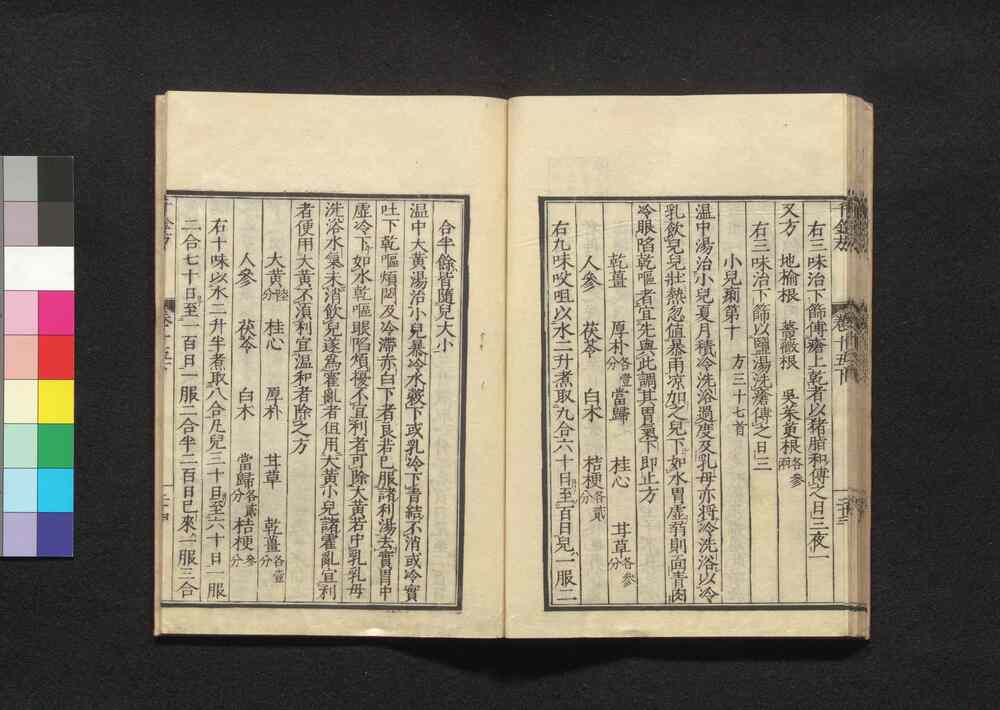 右三味治下篩傅瘡上乾者以猪脂和傅之日三夜一
又方　地榆根　薔薇根　吳茱萸根各參兩
右三味治下篩以鹽湯洗瘡傅之日三
小兒痢第十　方三十七首
温中湯治小兒夏月積冷洗浴過度及乳母亦將冷洗浴以冷
乳飲兒兒壯熱忽值暴雨凉加之兒下如水胃虛弱則面青肉
冷眼陷乾嘔者宜先與此調其胃氣下即止方
乾薑　厚朴各壹分　當歸　桂心　甘草各參分
人參　茯苓　白术　桔梗各貳分
右九味㕮咀以水二升煮取九合六十日至百日兒一服二
合半餘皆隨兒大小
温中大黃湯治小兒暴冷水穀下或乳冷下青結不消或冷實
吐下乾嘔煩悶及冷滯赤白下者良若已服諸利湯去實胃中
虛冷下如水乾嘔眼陷煩擾不宜利者可除大黃若中乳乳母
洗浴水氣未消飲兒遂爲霍亂者但用大黃小兒諸霍亂宜利
者便用大黃不湏利宜温和者除之方
大黃陸分　桂心　厚朴　甘草　乾薑各壹分
人參　茯苓　白术　當歸各貳分　桔梗參分
右十味以水二升半煮取八合凡兒三十日至六十日一服
二合七十日至一百日一服二合半二百日已來一服三合